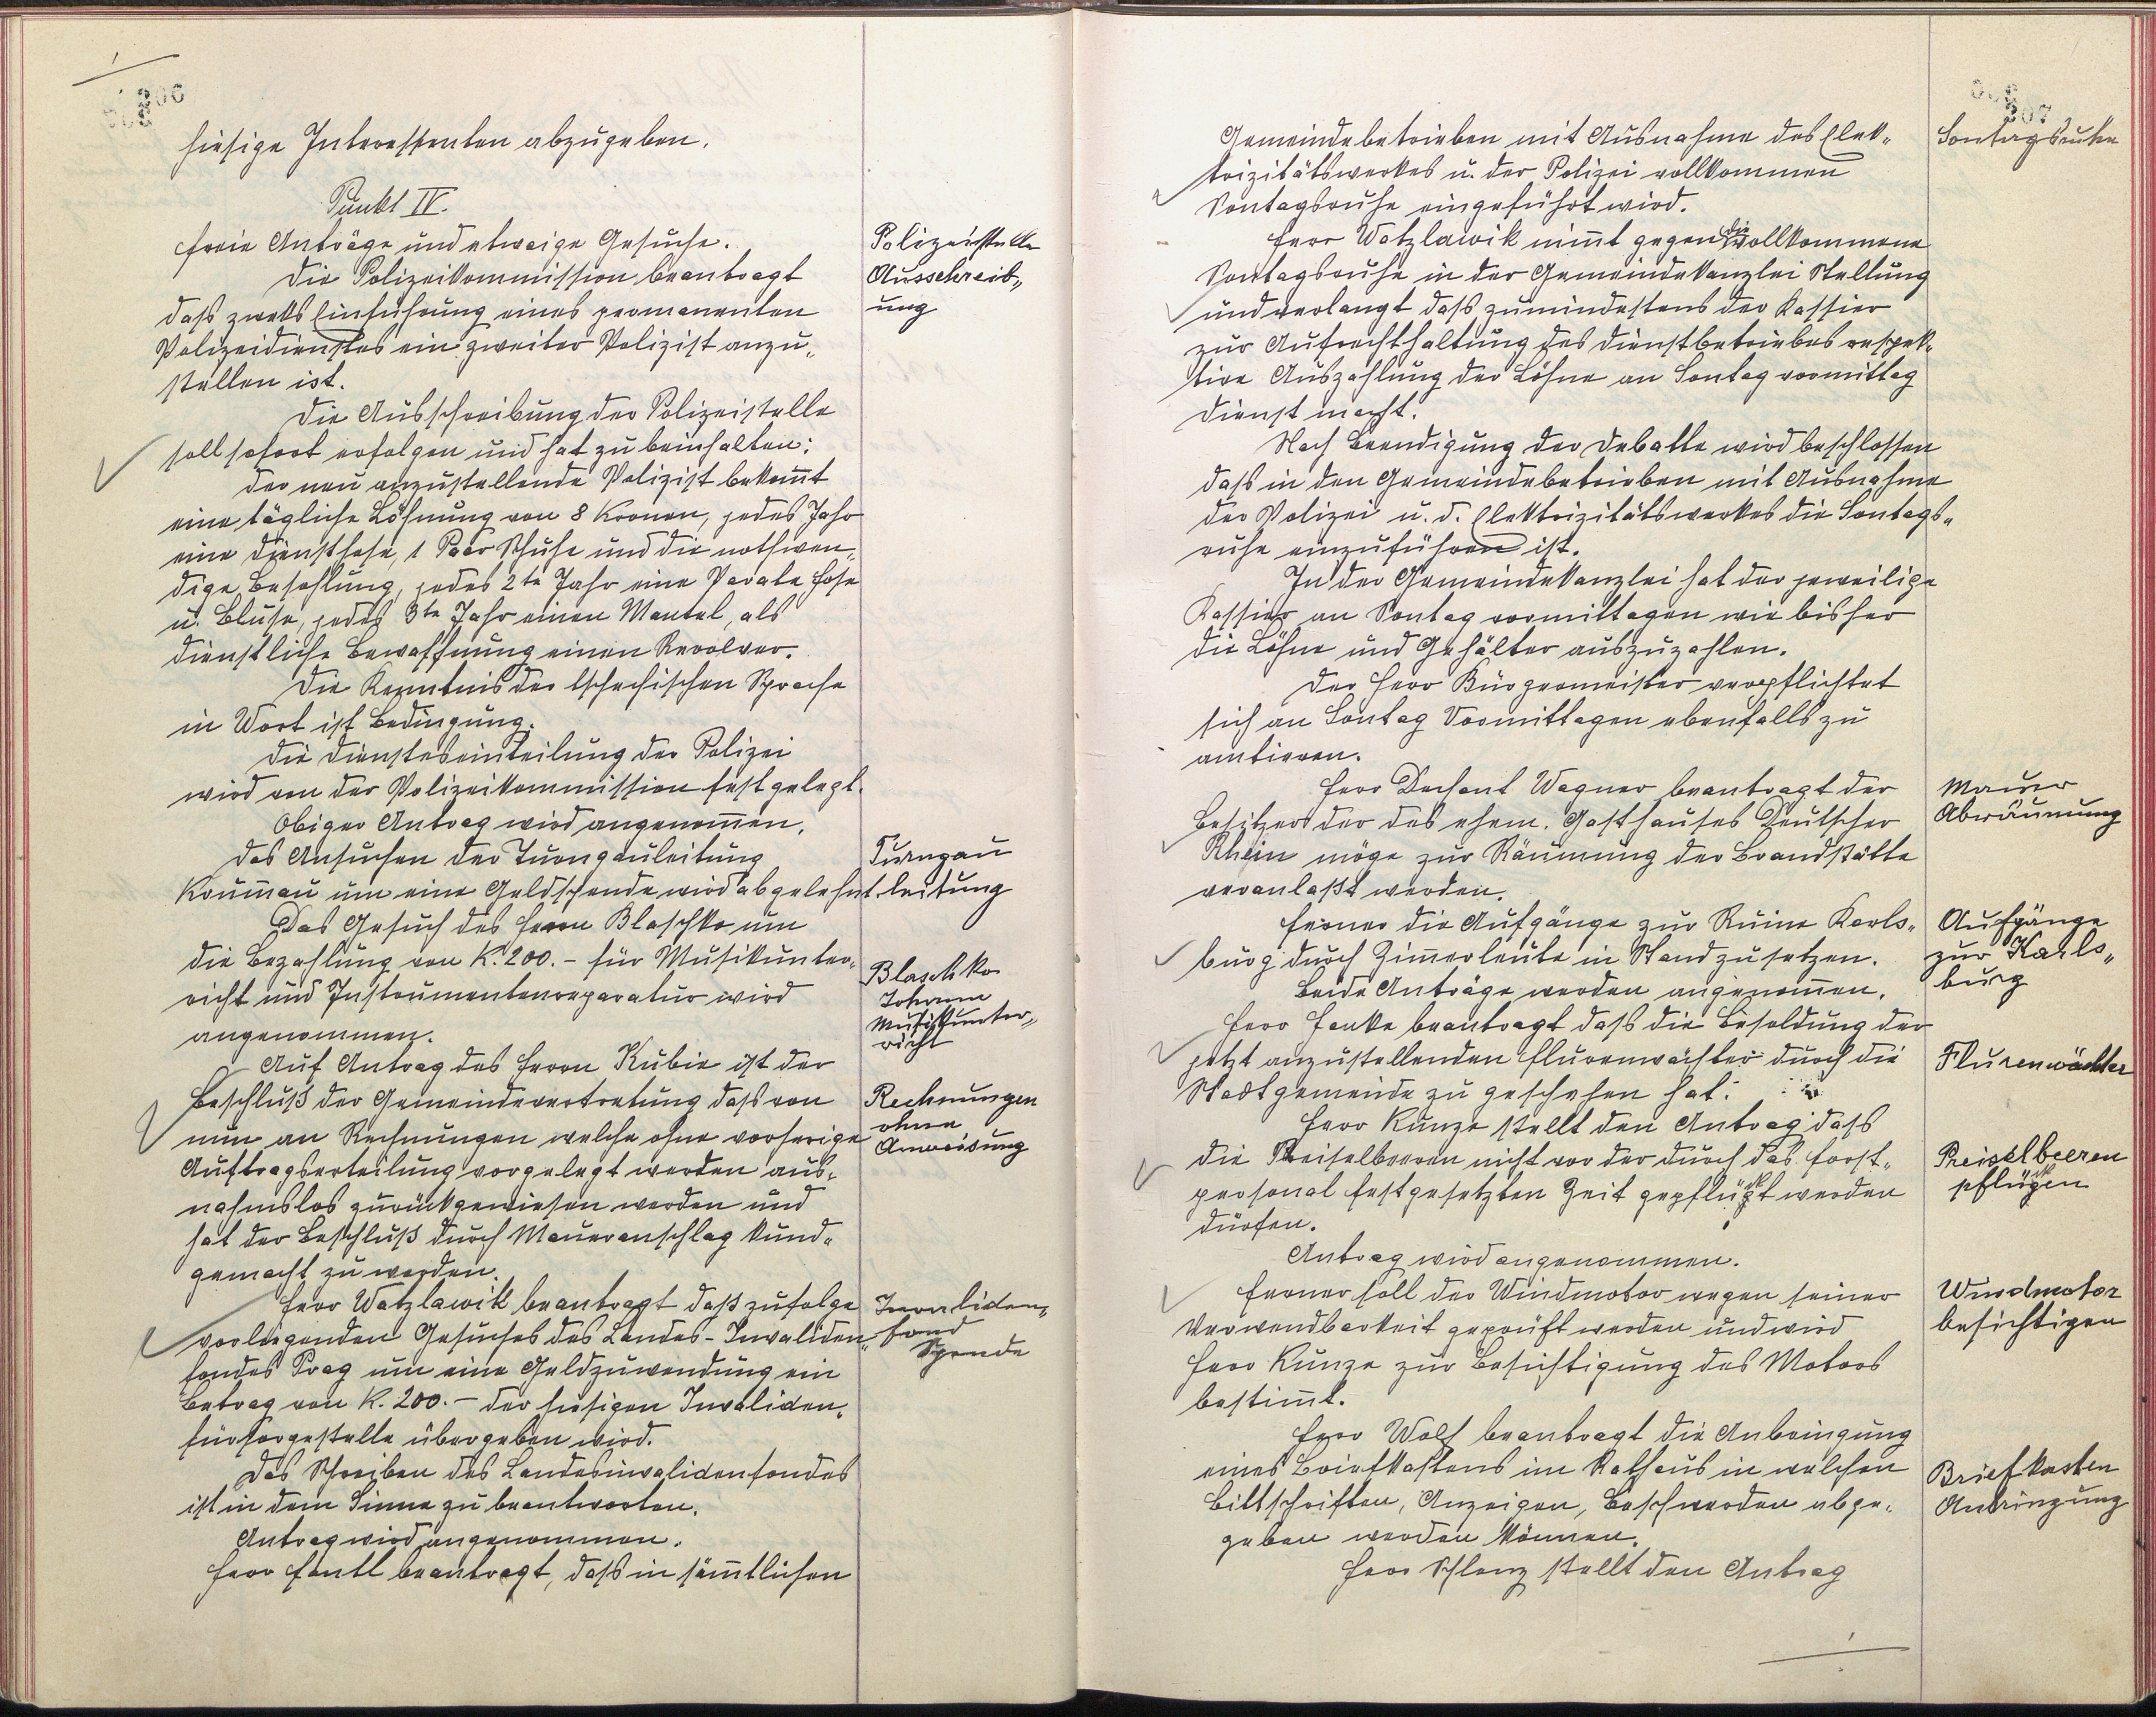 hiesige Interessenten abzugeben.
Punkt IV.
Freie Anträge und etwaige Gesuche.
Die Polizeikommission beantragt
daß zweks Einführung eines permanenten
Polizeidienstes ein zweiter Polizist anzu„
stellen ist.
Polizeistelle
Ausschreib„
ung
Die Ausschreibung der Polizeistelle
soll sofort erfolgen und hat zu beinhalten:
Der neu anzustellende Polizist bekom̄t
eine tägliche Löhnung von 8 Kronen, jedes Jahr
eine Diensthose, 1 Paar Schuhe und die nothwen„
dige Besohlung, jedes 2te Jahr eine Parade Hose
u. Bluse, jedes 3te Jahr einen Mantel, als
dienstliche Bewaffnung einen Revolver.
Die Kenntnis der tschechischen Sprache
in Wort ist Bedingung.
Die Diensteseinteilung der Polizei
wird von der Polizeikommission festgelegt.
Obiger Antrag wird angenom̄en.
Das Ansuchen der Turngauleitung
Krum̄au um eine Geldspende wird abgelehnt.
Turngau
leitung
Das Gesuch des Herrn Blaschko um
die Bezahlung von K. 200.- für Musikunter„
richt und Instrumentenreparatur wird
angenommen.
Blaschko
Johann
Musikunter„
richt
Auf Antrag des Herrn Kubie ist der
Beschluß der Gemeindevertretung daß von
nun an Rechnungen welche ohne vorherige
Auftragserteilung vorgelegt werden aus„
nahmslos zurückgewiesen werden und
hat der Beschluß durch Maueranschlag kund„
gemacht zu werden.
Rechnungen
ohne
Anweisung
Herr Watzlawik beantragt daß zufolge
vorliegenden Gesuches des Landes-Invaliden„
fondes Prag um eine Geldzuwendung ein
Betrag von K. 200.- der hiesigen Invaliden„
fürsorgestelle übergeben wird.
Invaliden„
fond
Spende
Das Schreiben des Landesinvalidenfondes
ist in dem Sinne zu beantworten.
Antrag wird angenommen.
Herr Fantl beantragt, daß in säm̄tlichen
207
Gemeindebetrieben mit Ausnahme des Elek„
trizitätswerkes u. der Polizei vollkommen
Sontagsruhe eingeführt wird.
Sontagsruhe
Herr Watzlawik nim̄t gegen die vollkommene
Sontagsruhe in der Gemeindekanzlei Stellung
und verlangt daß zumindestens der Kassier
zur Aufrechthaltung des Dienstbetriebes respek„
tive Auszahlung der Löhne an Sontag vormittag
Dienst macht.
Nach Beendigung der Debatte wird beschlossen
daß in den Gemeindebetrieben mit Ausnahme
der Polizei u. d. Elektrizitätswerkes die Sontags„
ruhe einzuführen ist.
In der Gemeindekanzlei hat der jeweilige
Kassier an Sontag vormittagen wie bisher
die Löhne und Gehälter auszuzahlen.
Der Herr Bürgermeister verpflichtet
sich an Sontag Vormittagen ebenfalls zu
amtieren.
Herr Dechant Wagner beantragt der
Besitzers der des ehem. Gasthauses Deutscher
Rhein möge zur Räumung der Brandstätte
veranlaßt werden.
Mauer
Abräumung
Ferner die Aufgänge zur Ruine Karls„
burg durch Zim̄erleute in Stand zu setzen.
Beide Anträge werden angenom̄en.
Aufgänge
zur Karls„
burg
Herr Janke beantragt daß die Besoldung der
jetzt anzustellenden Flurenwächter durch die
Stadtgemeinde zu geschehen hat.
Flurenwächter
Herr Kunze stellt den Antrag daß
die Preiselbeeren nicht vor der durch das Forst„
personal festgesetzten Zeit gepflückt werden
dürfen.
Preiselbeeren
pflücken
Antrag wird angenommen.
Ferner soll der Windmotor wegen seiner
Verwendbarkeit geprüft werden und wird
Herr Kunze zur Besichtigung des Motors
bestim̄t.
Windmotor
besichtigen
Herr Wolf beantragt die Anbringung
eines Briefkastens im Rathaus in welchen
Bittschriften, Anzeigen, Beschwerden abge„
geben werden können.
Briefkasten
Anbringung
Herr Schlenz stellt den Antrag